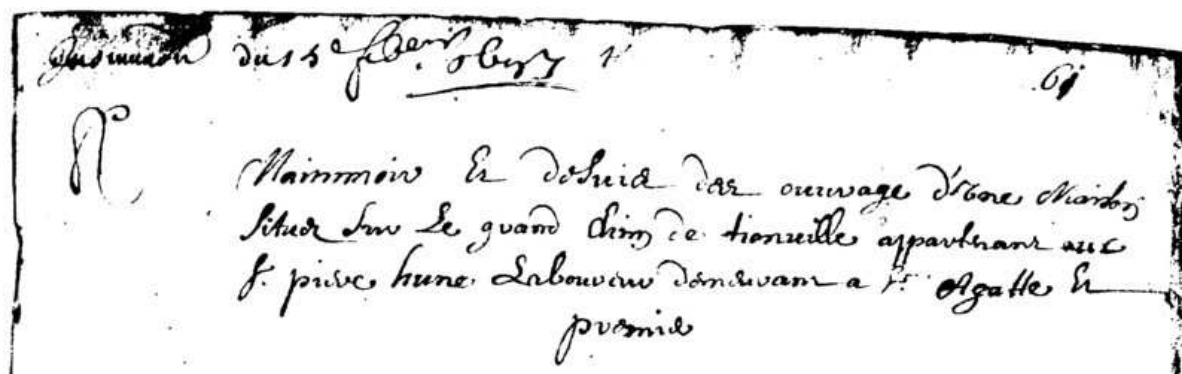 du 15e
61
N
Mainmoir Et desvis der ouuvage d'vne Maison
situer sur Le grand chim de tionuille appartenant aux
Sr. pierre hune Laboureur demeurant a Ste Agatte Et
premie